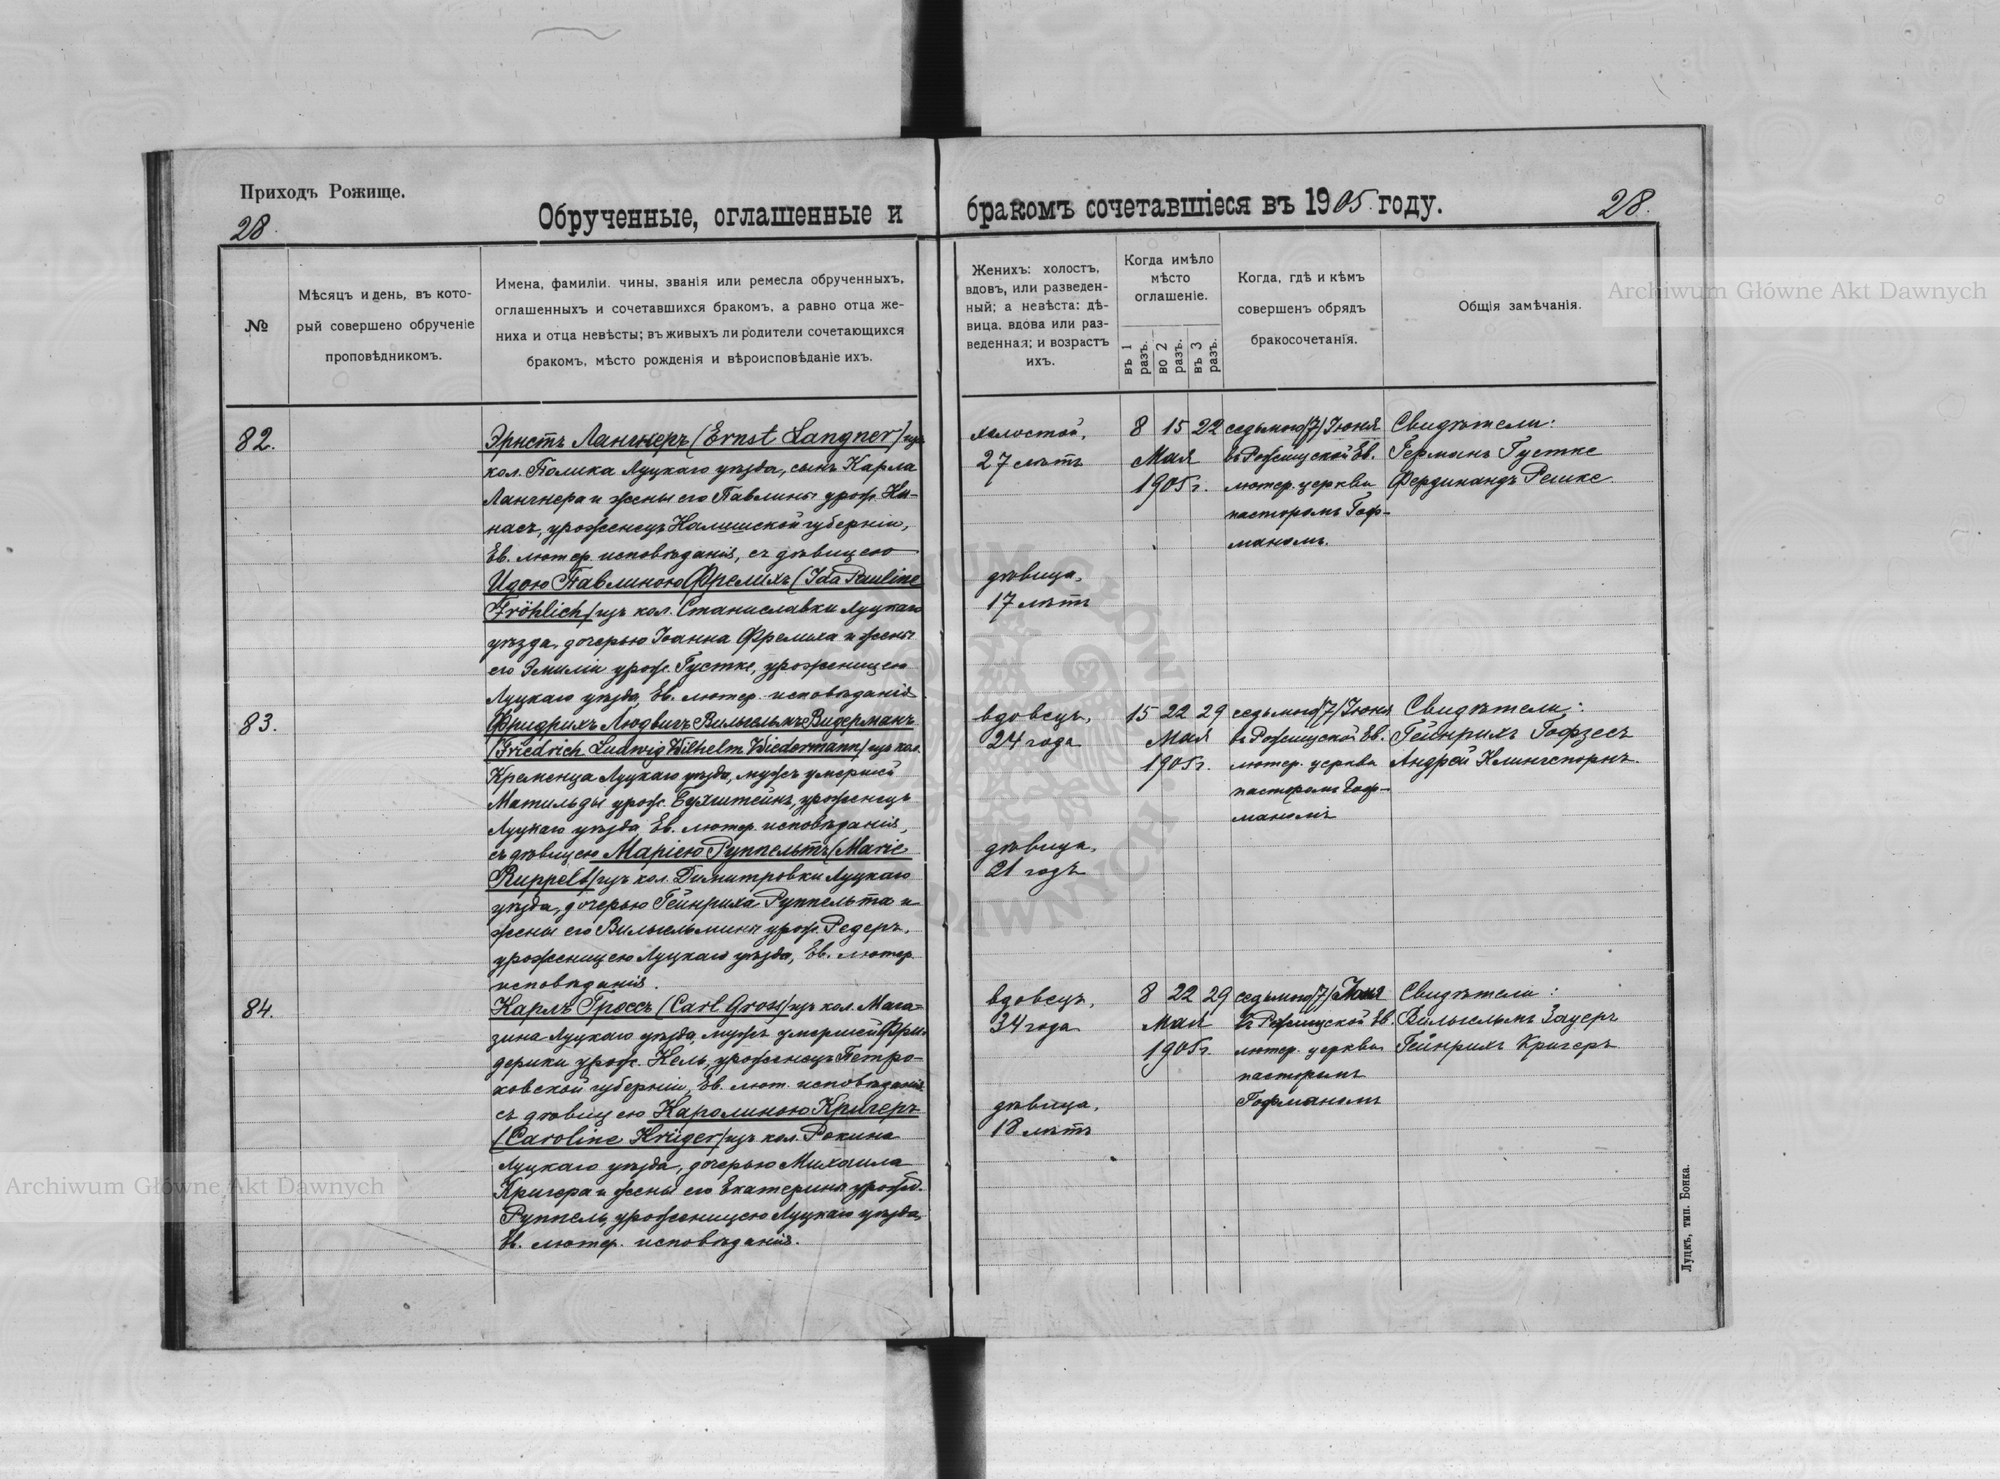 Приходъ Рожище.
28.
Обрученные, оглашенные и
бракомъ сочетавшіеся въ 1905 году.
28.
№
Мѣсяцъ и день, въ кото-
рый совершено обрученіе
проповѣдникомъ.
Имена, фамиліи. чины, званія или ремесла обрученныхъ,
оглашенныхъ и сочетавшихся бракомъ, а равно отца же-
ниха и отца невѣсты; въ живыхъ ли родители сочетающихся
бракомъ, мѣсто рожденія и вѣроисповѣданіе ихъ.
Женихъ: холостъ,
вдовъ, или разведен-
ный; а невѣста: дѣ-
вица, вдова или раз-
веденная; и возрастъ
ихъ.
Когда имѣло
мѣсто
оглашеніе.
въ 1 разъ.
во 2 разъ.
въ 3 разъ.
Когда, гдѣ и кѣмъ
совершенъ обрядъ
бракосочетанія.
Общія замѣчанія.
82.
Эрнстъ Лангнеръ (Ernst Langner) изъ
кол. Полика Луцкаго уѣзда, сынъ Карла
Лангнера и жены его Павлины урож. Ки-
насъ, уроженецъ Калишской губерніи,
Ев. лютер. исповѣданія, съ дѣвицею
Идою Павлиною Фрелихъ (Ida Pauline
Fröhlich) изъ кол. Станиславки Луцкаго
уѣзда, дочерью Іоанна Фрелиха и жены
его Эмиліи урож. Густке, уроженицею
Луцкаго уѣзда, Ев. лютер. исповѣданія.
холостой,
27 лѣтъ
дѣвица,
17 лѣтъ
8 15 22
Мая
1905 г.
седьмого /7/ Іюня
въ Рожищской Ев.
лютер. церкви
пасторомъ Гоф-
маномъ.
Свидѣтели:
Германъ Густке
Фердинандъ Решке.
83.
Фридрихъ Людвигъ Вильгельмъ Видерманъ
(Friedrich Ludwig Wilhelm Wiedermann) изъ кол.
Кременца Луцкаго уѣзда, мужъ умершей
Матильды урож. Бухштейнъ, уроженецъ
Луцкаго уѣзда, Ев. лютер. исповѣданія,
съ дѣвицею Маріею Руппельтъ (Marie
Ruppelt) изъ кол. Димитровки Луцкаго
уѣзда, дочерью Гейнриха Руппельта и
жены его Вильгельмины урож. Редеръ,
уроженицею Луцкаго уѣзда, Ев. лютер.
исповѣданія.
вдовецъ,
24 года
дѣвица,
21 годъ
15 22 29
Мая
1905 г.
седьмого /7/ Іюня
въ Рожищской Ев.
лютер. церкви
пасторомъ Гоф-
маномъ
Свидѣтели:
Гейнрихъ Гофзесъ
Андрей Клингспорнъ.
84.
Карлъ Гроссъ (Carl Gross) изъ кол. Мага-
зина Луцкаго уѣзда, мужъ умершей Фри-
дерики урож. Кель, уроженецъ Петро-
ковской губерніи, Ев. лют. исповѣданія
съ дѣвицею Каролиною Кригеръ
(Caroline Krüger) изъ кол. Рокина
Луцкаго уѣзда, дочерью Михаила
Кригера и жены его Екатерины урожд.
Руппель, уроженицею Луцкаго уѣзда,
Ев. лютер. исповѣданія.
вдовецъ,
34 года
дѣвица,
18 лѣтъ
8 22 29
Мая
1905 г.
седьмого /7/ Іюня
въ Рожищской Ев.
лютер. церкви
пасторомъ
Гофманомъ
Свидѣтели:
Вильгельмъ Зауеръ
Гейнрихъ Кригеръ
Луцкъ, тип. Бонка.
Archiwum Główne Akt Dawnych
Archiwum Główne Akt Dawnych